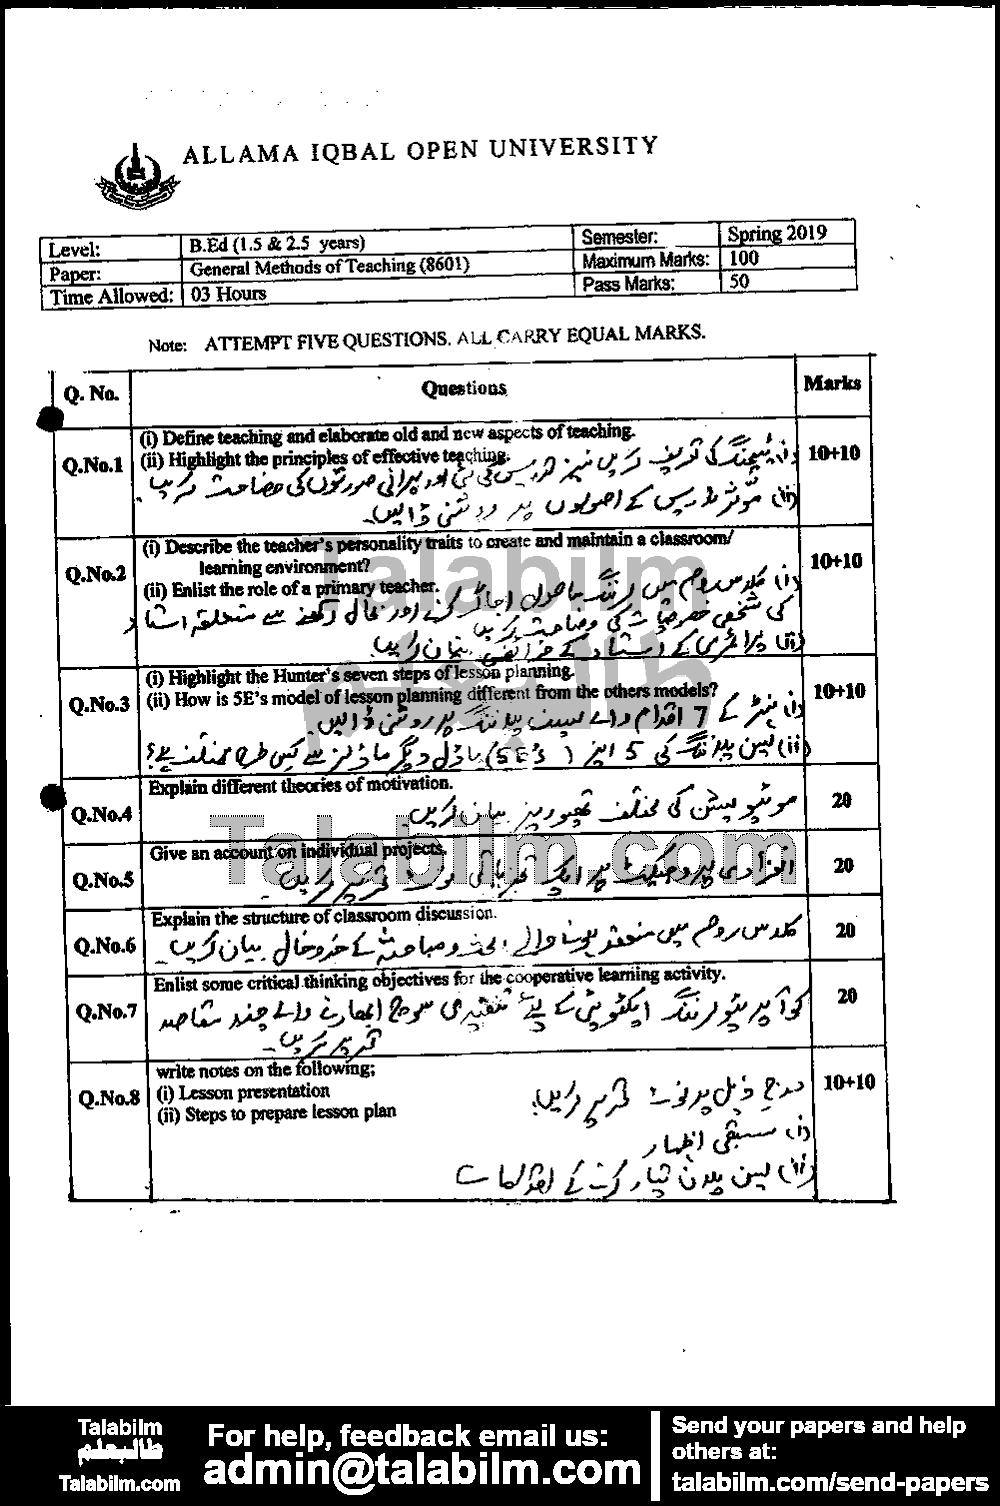 ALLAMA IQBAL OPEN UNIVERSITY
Level: B.Ed (1.5 & 2.5 years) Semester: Spring 2019
Paper: General Methods of Teaching (8601) Maximum Marks: 100
Time Allowed: 03 Hours Pass Marks: 50
Note: ATTEMPT FIVE QUESTIONS. ALL CARRY EQUAL MARKS.
Q. No. Questions Marks
Q.No.1 (i) Define teaching and elaborate old and new aspects of teaching. 10+10
(ii) Highlight the principles of effective teaching.
(i) ٹیچنگ کی تعریف کریں نیز تدریس کی نئی اور پرانی صورتوں کی وضاحت کریں۔
(ii) موٴثر تدریس کے اصولوں پر روشنی ڈالیں۔
Q.No.2 (i) Describe the teacher's personality traits to create and maintain a classroom/ 10+10
learning environment?
(ii) Enlist the role of a primary teacher.
(i) کلاس روم میں لرننگ ماحول اجاگر کرنے اور بحال رکھنے سے متعلقہ استاد
کی شخصی خصوصیات کی وضاحت کریں
(ii) پرائمری کے استاد کے فرائض بیان کریں۔
Q.No.3 (i) Highlight the Hunter's seven steps of lesson planning. 10+10
(ii) How is 5E's model of lesson planning different from the others models?
(i) ہنٹر کے 7 اقدام والے لیسن پلاننگ پر روشنی ڈالیں۔
(ii) لیسن پلاننگ کی 5 ایز (5E's) ماڈل دیگر ماڈلز سے کس طرح مختلف ہے؟
Q.No.4 Explain different theories of motivation. 20
موٹیویشن کی مختلف تھیوریز بیان کریں۔
Q.No.5 Give an account on individual projects. 20
انفرادی پروجیکٹ پر ایک تجرباتی نوٹ تحریر کریں۔
Q.No.6 Explain the structure of classroom discussion. 20
کلاس روم میں منعقد ہونے والے بحث و مباحثہ کے خدوخال بیان کریں۔
Q.No.7 Enlist some critical thinking objectives for the cooperative learning activity. 20
کوآپریٹو لرننگ ایکٹویٹی کے لیے تنقیدی سوچ ابھارنے والے چند مقاصد
تحریر کریں۔
Q.No.8 write notes on the following; 10+10
(i) Lesson presentation
(ii) Steps to prepare lesson plan
درج ذیل پر نوٹ تحریر کریں۔
(i) سبقی اظہار
(ii) لیسن پلان تیار کرنے کے
Talabilm
طالبعلم
Talabilm.com
Talabilm
طالبعلم
Talabilm.com
For help, feedback email us:
admin@talabilm.com
Send your papers and help
others at:
talabilm.com/send-papers